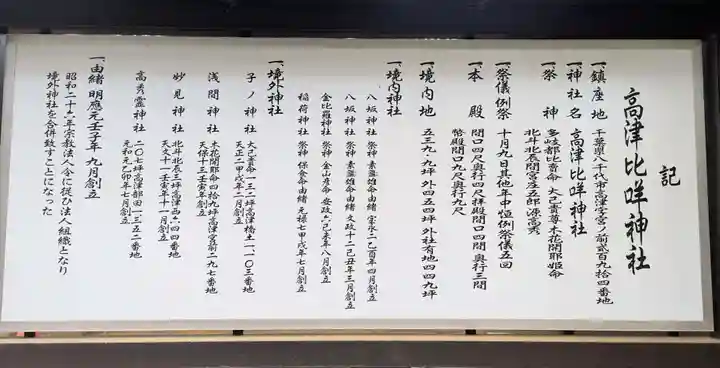 記
高津比咩神社
一、鎮座地 千葉県八千代市高津字宮ノ前貳百九拾四番地
一、神社名 高津比咩神社
一、祭神 多岐都比賣命 大己貴尊 木花開耶姫命
北斗北辰間宮庄五郎源高秀
一、祭儀 例祭 十月九日其他年中恒例祭儀五回
一、本殿 間口四尺奥行四尺拝殿間口四間 奥行三間
幣殿間口九尺奥行九尺
一、境内地 五三九・九坪 外四五四坪 外社有地四四九坪
一、境内神社
八坂神社 祭神 素盞雄命由緒 宝永二乙酉年四月創立
八坂神社 祭神 素盞雄命由緒 文政十二己丑年三月創立
金比羅神社 祭神 金山彦命 安政六己未年八月創立
稲荷神社 祭神 保食命由緒 元禄七甲戌年七月創立
一、境外神社
子ノ神社 大己貴命一三一坪高津橋土一、一一〇三番地
天正二甲戌年二月創立
浅間神社 木花開耶命四拾九坪高津宮前二九七番地
天保十三壬寅年創立
妙見神社 北斗北辰三坪高津西六四四番地
天文十一壬寅年十一月創立
高秀霊神社 二〇七坪高津部田一三五二番地
元和元乙卯年七月創立
一、由緒 明應元壬子年 九月創立
昭和二十六年宗教法人令に従ひ法人組織となり
境外神社を合併致すことになった